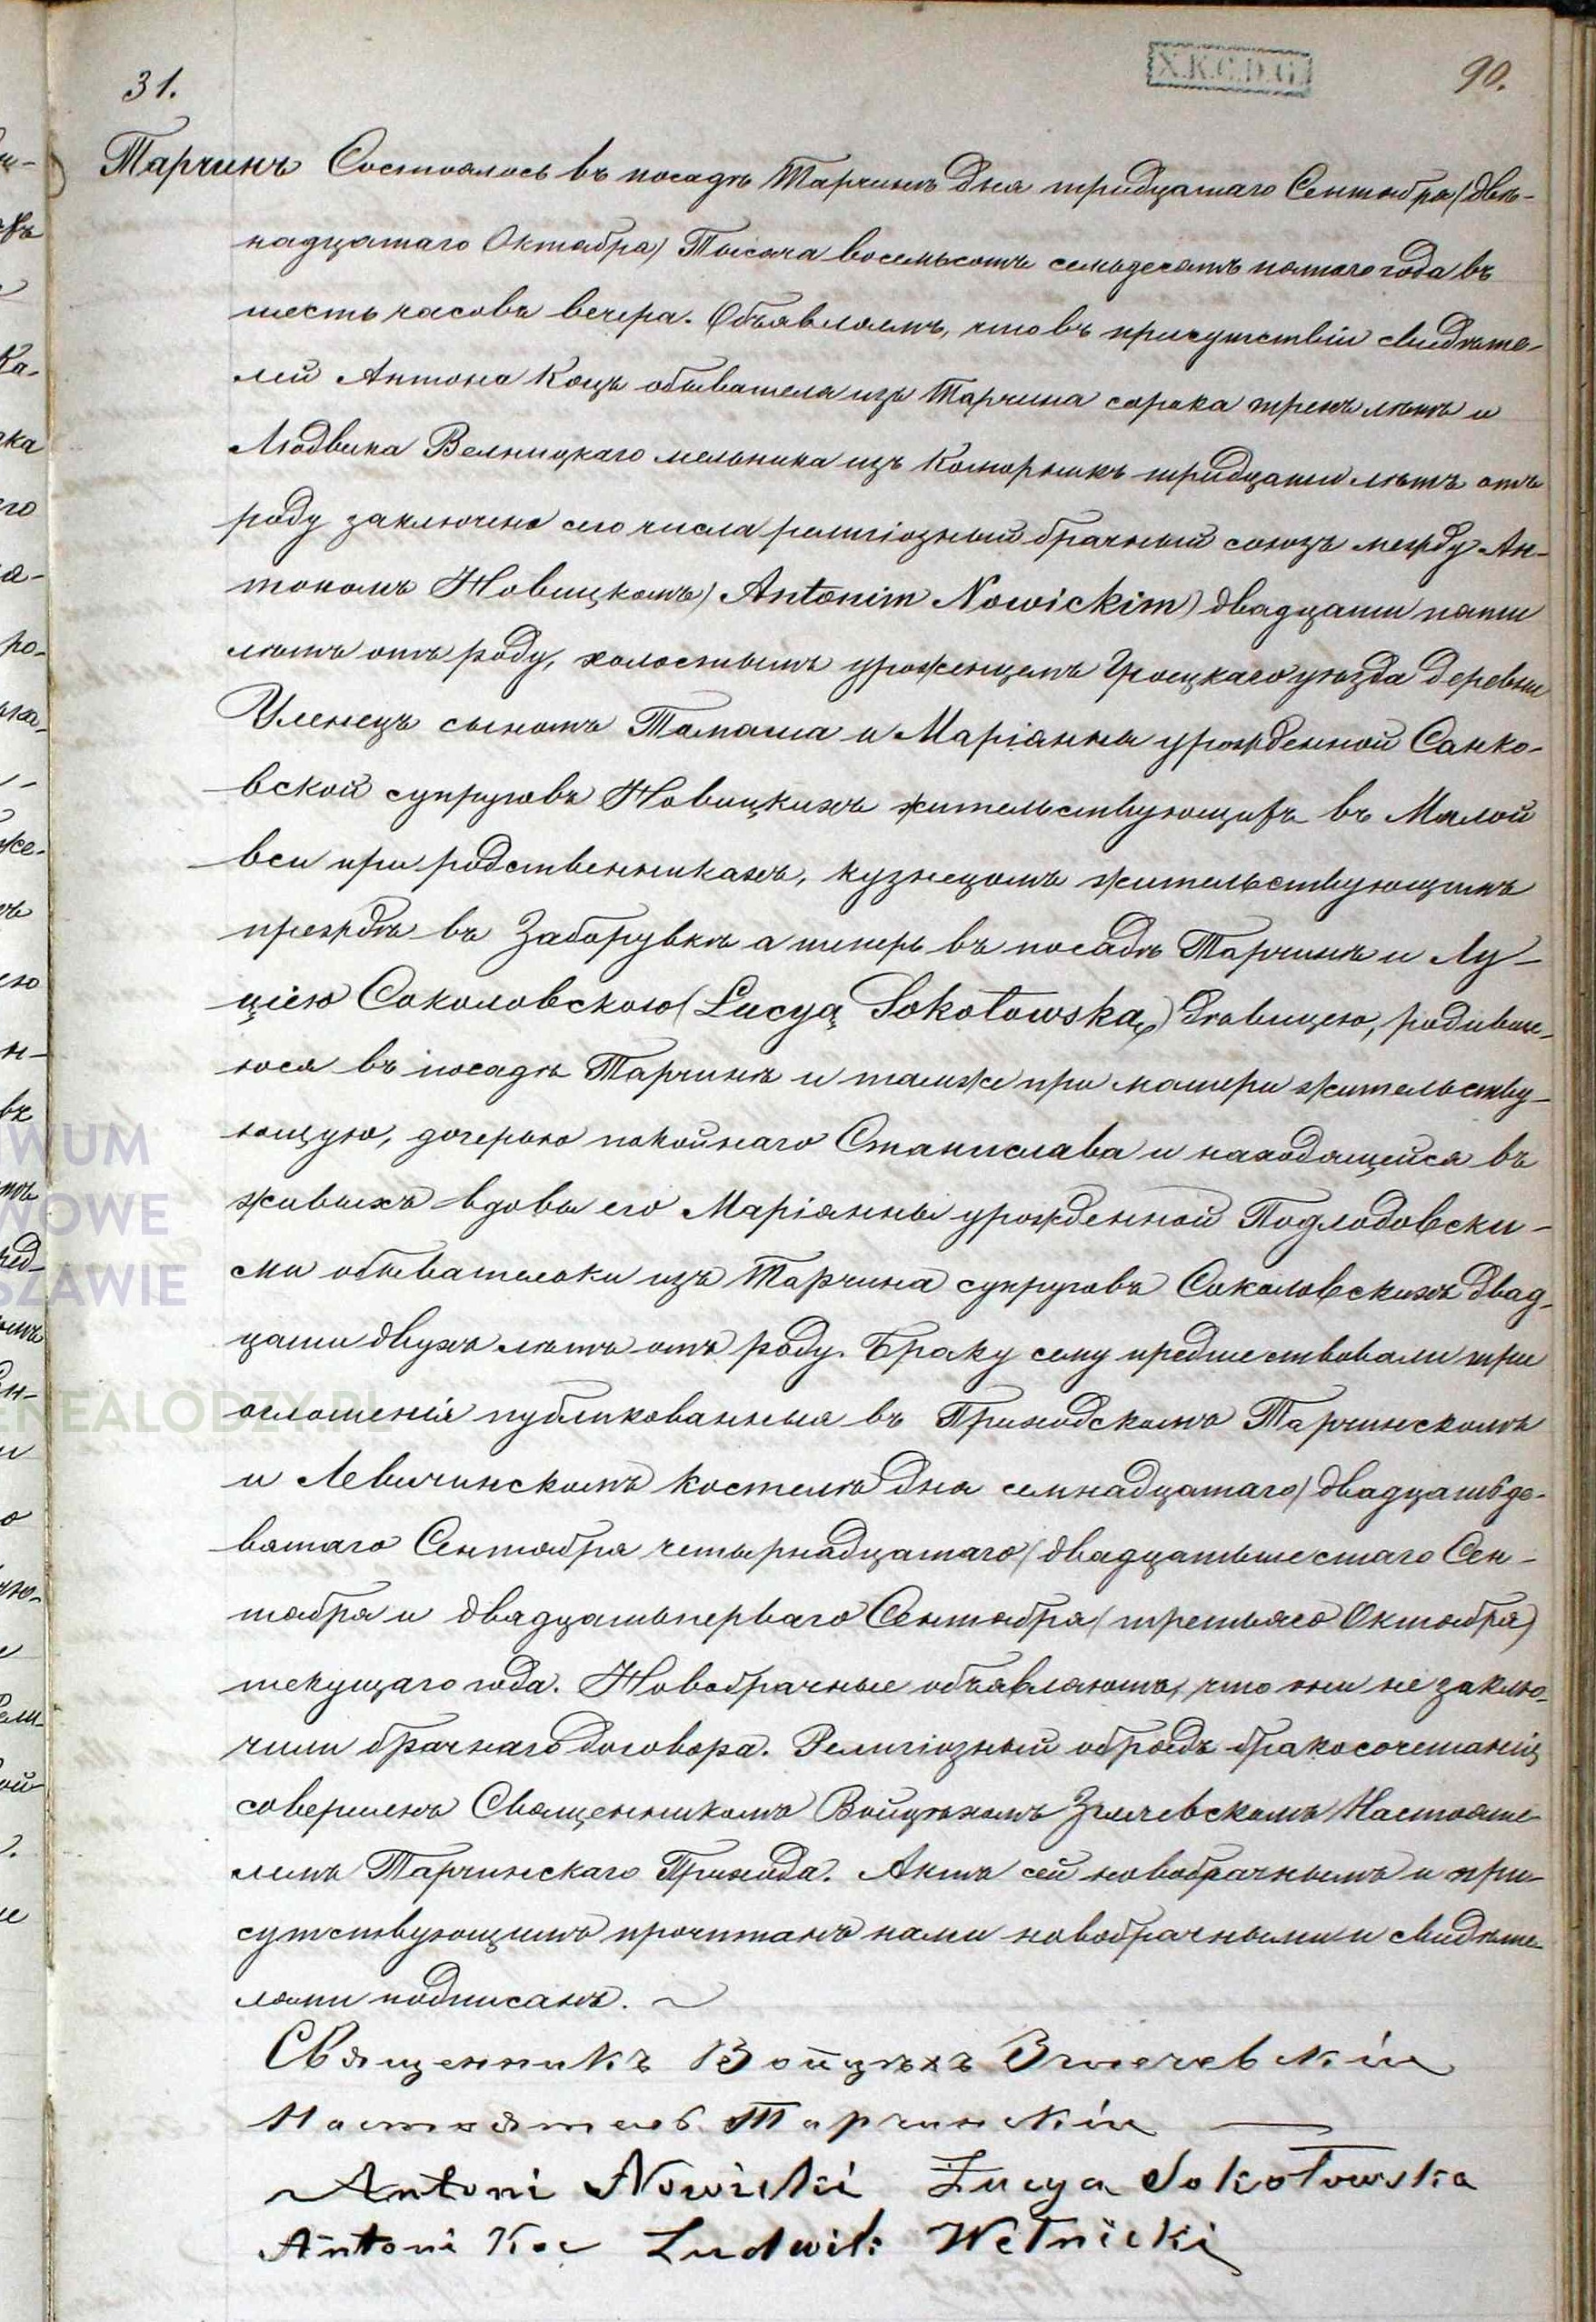 31.
X.K.C.D.G.
90.
Тарчинъ Состоялось въ посадѣ Тарчинѣ дня тридцатаго Сентября (двѣ-
надцатаго Октября) Тысяча восемьсотъ семьдесятъ пятаго года въ
шесть часовъ вечера. Объявляемъ, что въ присутствіи свидѣте-
лей Антона Коцъ обывателя изъ Тарчина сорока трехъ лѣтъ и
Людвика Велницкаго мельника изъ Коморникъ тридцати лѣтъ отъ
роду заключенъ сего числа религіозный брачный союзъ между Ан-
тономъ Новицкомъ (Antonim Nowickim) двадцати пяти
лѣтъ отъ роду, холостымъ уроженцемъ Гроецкаго уѣзда деревни
Уленецъ сыномъ Томаша и Маріанны урожденной Санко-
вской супруговъ Новицкихъ жительствующихъ въ Малой
вси при родственникахъ, кузнецомъ жительствующимъ
прежде въ Заборувкѣ а теперь въ посадѣ Тарчинѣ и Лу-
ціею Соколовскою (Lucyą Sokołowską) дѣвицею, родивше-
юся въ посадѣ Тарчинѣ и тамже при матери жительству-
ющую, дочерью покойнаго Станислава и находящейся въ
живыхъ вдовы его Маріанны урожденной Подлодовски-
ми обывательки изъ Тарчина супруговъ Соколовскихъ двад-
цати двухъ лѣтъ отъ роду. Браку сему предшествовали три
оглошенія публикованныя въ Приходскомъ Тарчинскомъ
и Левичинскомъ костелѣ дня семнадцатаго (двадцатьде-
вятаго Сентября четырнадцатаго (двадцатьшестаго Сен-
тября и двадцатьперваго Сентября (третьяго Октября)
текущаго года. Новобрачные объявляютъ, что они не заклю-
чили брачнаго договора. Религіозный обрядъ бракосочетанія
совершенъ Священникомъ Войцѣхомъ Змѣевскомъ Настояте-
лемъ Тарчинскаго Прихода. Актъ сей новобрачнымъ и при-
сутствующимъ прочитанъ нами новобрачными и свидѣте-
лями подписанъ.
Священникъ Войцѣхъ
Настоятель Тарчинскій
Antoni Nowicki Lucya Sokołowska
Antoni Koc Ludwik Wełnicki
WUM
WOWE
SZAWIE
ENEALODZY.PL